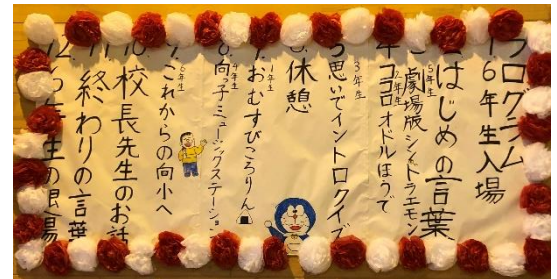 プログラム
1 6年生入場
2 はじめの言葉
5年生
3 劇場版シン・ドラえもん
2年生
4 ココロオドルほうで
3年生
5 思いでイントロクイズ
6 休憩
1年生
7 おむすびころりん
4年生
8 向っ子ミュージックステーション
6年生
9 これからの向小へ
10 校長先生のお話
11 終わりの言葉
12 6年生の退場